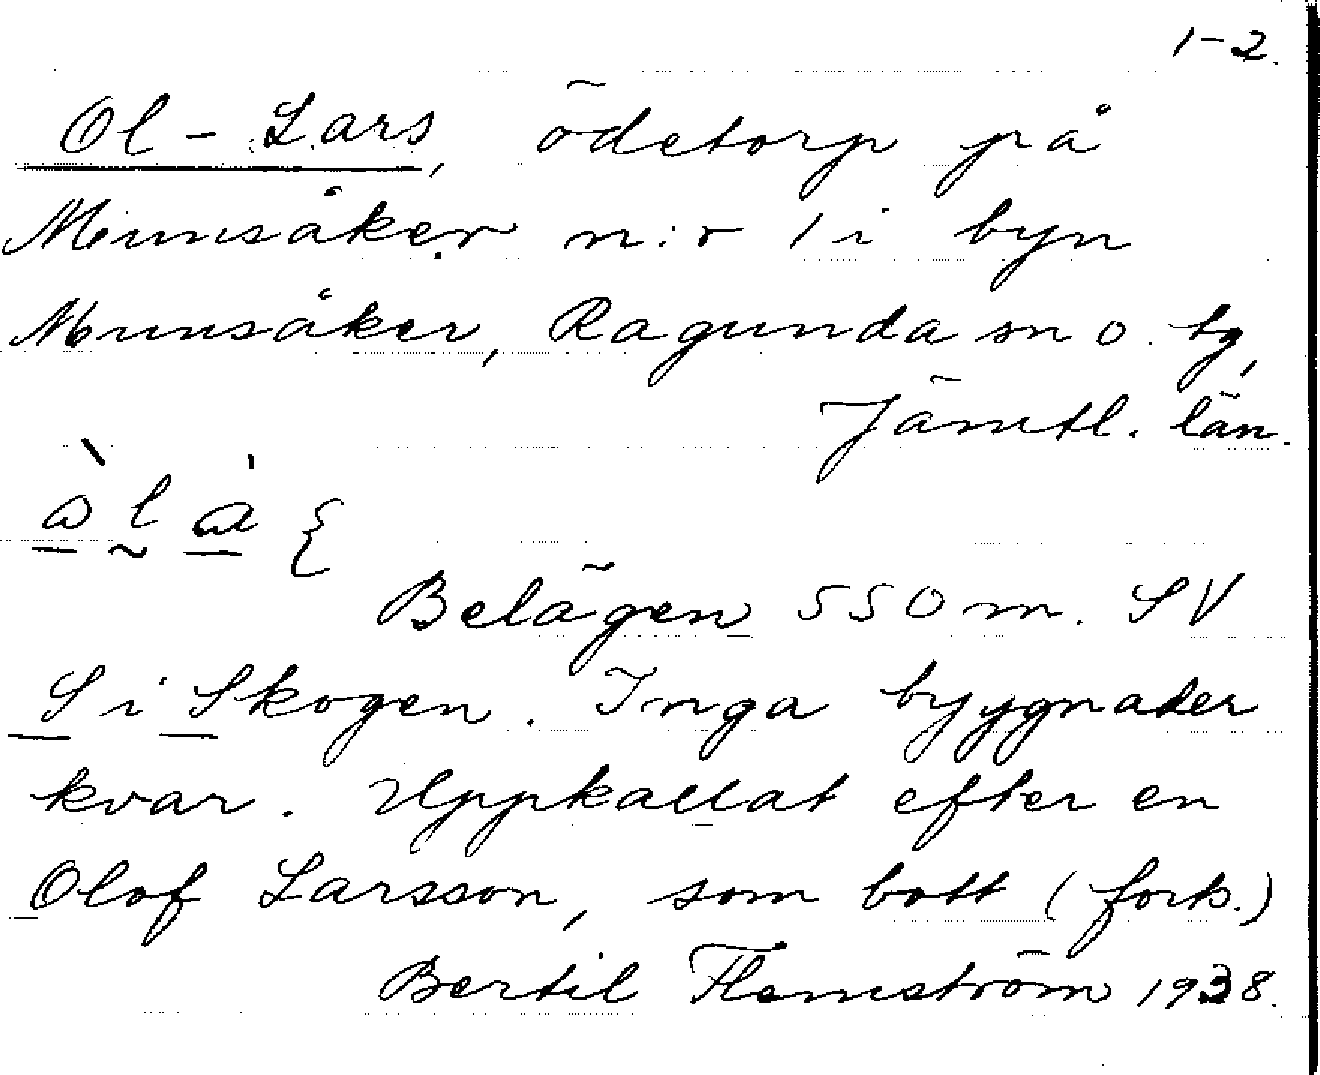 1-2.
Ol-Lars, ödetorp på
Munsåker n:r 1 i byn
Munsåker, Ragunda sn o. tg,
Jämtl. län.
Belägen 550 m. SV
S i Skogen. Inga byggnader
kvar. Uppkallat efter en
Olof Larsson, som bott (forts.)
Bertil Flemström 1938.